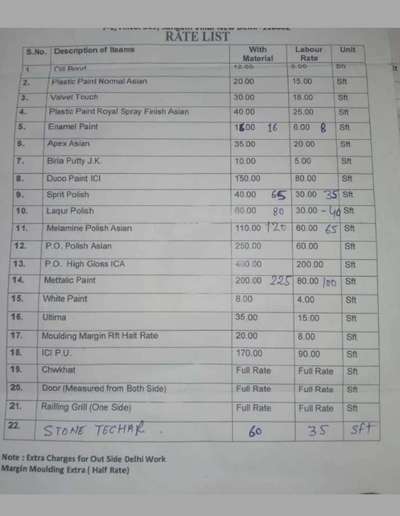 RATE LIST
S.No. Description of Iteams With Material Labour Rate Unit
1. Oil Bond 12.00 6.00 Sft
2. Plastic Paint Normal Asian 20.00 15.00 Sft
3. Valvet Touch 30.00 18.00 Sft
4. Plastic Paint Royal Spray Finish Asian 40.00 25.00 Sft
5. Enamel Paint 16.00 16 6.00 8 Sft
6. Apex Asian 35.00 20.00 Sft
7. Birla Putty J.K. 10.00 5.00 Sft
8. Duco Paint ICI 150.00 80.00 Sft
9. Sprit Polish 40.00 65 30.00 35 Sft
10. Laqur Polish 60.00 80 30.00 - 40 Sft
11. Melamine Polish Asian 110.00 120 60.00 65 Sft
12. P.O. Polish Asian 250.00 60.00 Sft
13. P.O. High Gloss ICA 200.00 Sft
14. Mettalic Paint 200.00 225 80.00 100 Sft
15. White Paint 8.00 4.00 Sft
16. Ultima 35.00 15.00 Sft
17. Moulding Margin Rft Half Rate 20.00 8.00 Sft
18. ICI P.U. 170.00 90.00 Sft
19. Chwkhat Full Rate Full Rate Sft
20. Door (Measured from Both Side) Full Rate Full Rate Sft
21. Railling Grill (One Side) Full Rate Full Rate Sft
22. STONE TECHAR. 60 35 Sft
Note : Extra Charges for Out Side Delhi Work
Margin Moulding Extra ( Half Rate)